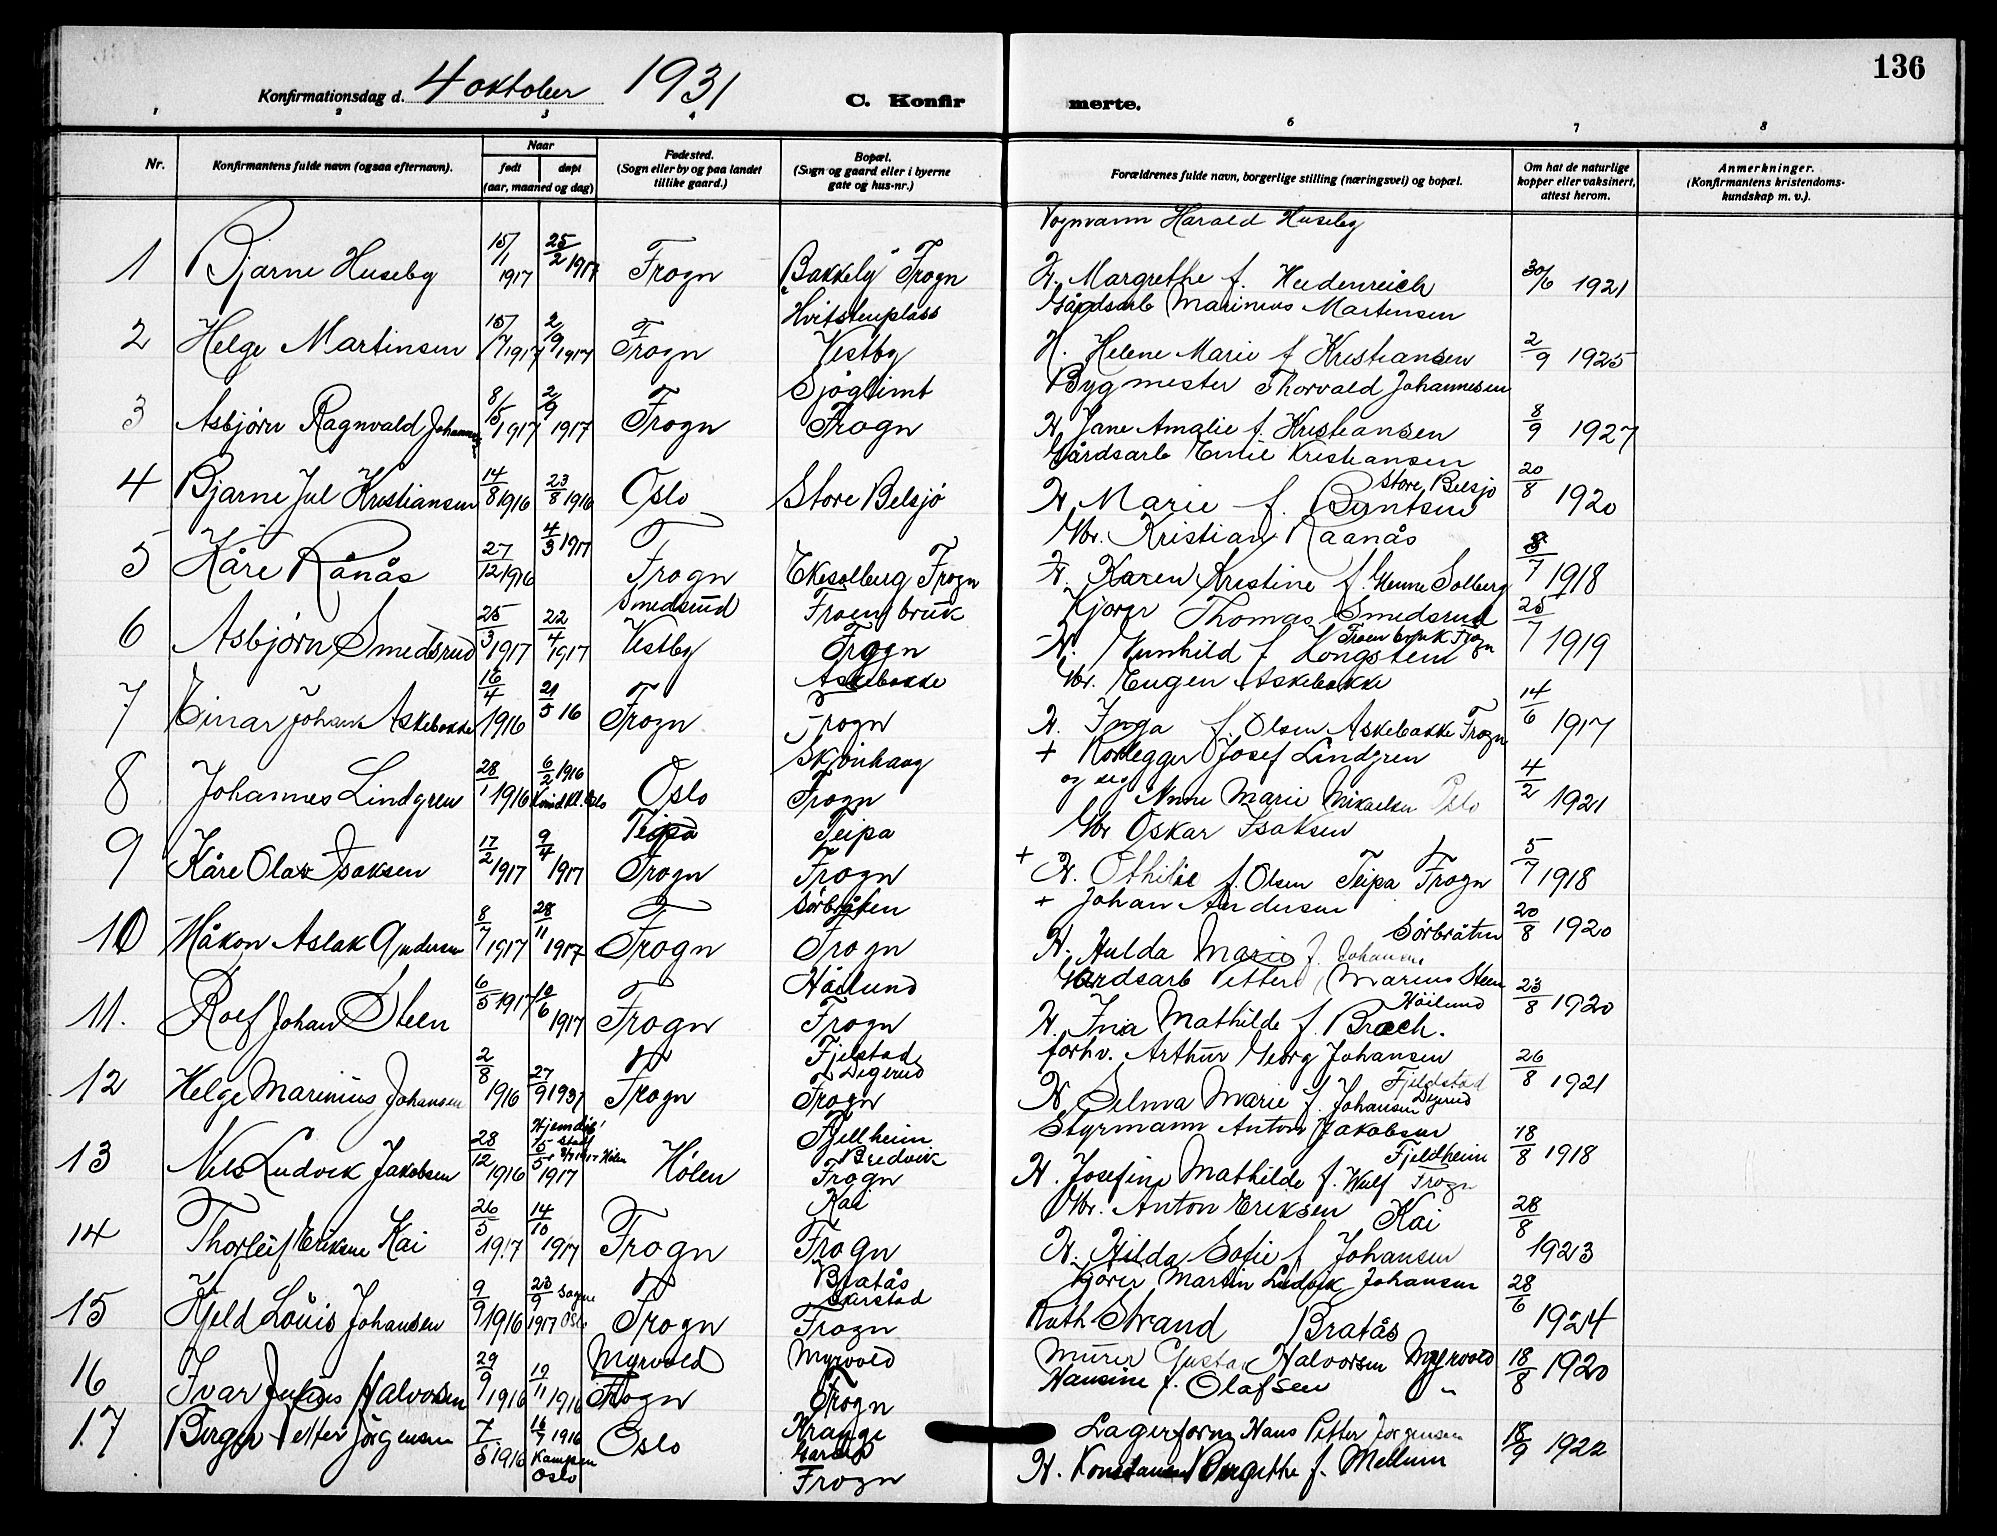 136
Konfirmationsdag d. 4 oktober 1931 C. Konfirmerte.
1 2 3 4 6 7 8
Nr. Konfirmantens fulde navn (ogsaa efternavn). Naar født døpt (aar, maaned og dag) Fødested. (Sogn eller by og paa landet tillike gaard.) Bopæl. (Sogn og gaard eller i byerne gate og hus-nr.) Forældrenes fulde navn, borgerlige stilling (næringsvei) og bopæl. Om hat de naturlige kopper eller vaksinert, attest herom. Anmerkninger. (Konfirmantens kristendomskundskap m. v.).
Vognmann Harald Huseby
1 Bjarne Huseby 15/1 1917 25/2 1917 Frogn "Bakkely" Frogn H. Margrethe f. Heidenreich 30/6 1921
Hvitstenplass Gårdsarb Marinius Martensen
2 Helge Martinsen 15/7 1917 2/9 1917 Frogn Vestby H. Helene Marie f Kristiansen 2/9 1925
Sjøglimt Bygmester Thorvald Johannesen
3 Asbjørn Ragnvald Johannesen 8/5 1917 2/9 1917 Frogn Frogn H Jane Amalie f. Kristiansen 8/9 1927
Gårdsarb Emil Kristiansen
4 Bjarne Jul Kristiansen 14/8 1916 23/8 1916 Oslo Store Belsjø H Marie f. Berntsen Store Belsjø 20/8 1920
Gbr. Kristian Raanås
5 Kåre Rånås 27/12 1916 4/3 1917 Frogn Ekesolberg Frogn H. Karen Kristine f Solberg 8/7 1918
Smedsrud Froen bruk Kjører Thomas Smedsrud
6 Asbjørn Smedsrud 25/3 1917 22/4 1917 Vestby Frogn H. Gunhild f Kongstein Froen bruk Frogn 25/7 1919
Askebakke Gbr. Eugen Askebakke
7 Einar Johan Askebakke 16/4 1916 21/5 16 Frogn Frogn H. Inga f. Olsen Askebakke Frogn 14/6 1917
Skjønhaug + Rørlegger Josef Lindgren
8 Johannes Lindgren 28/1 1916 6/2 1916 Kvindkl. Oslo Oslo Frogn og Anne Marie Mikaelsen Oslo 4/2 1921
Teipa Teipa Gbr Oskar Isaksen
9 Kåre Olav Isaksen 17/2 1917 9/4 1917 Frogn Frogn + H. Othilie f. Olsen Teipa Frogn 5/7 1918
Sørbråten + Johan Andersen
10 Håkon Aslak Andersen 8/7 1917 28/11 1917 Frogn Frogn H. Hulda Marie f. Johansen Sørbråten 20/8 1920
Høilund Gårdsarb Petter Marius Steen
11. Rolf Johan Steen 6/5 1917 10/6 1917 Frogn Frogn H. Ina Mathilde f. Bræch. Høilund 23/8 1920
Fjelstad Degerud forhv. Arthur Georg Johansen
12 Helge Marinius Johansen 2/8 1916 27/9 1931 Frogn Frogn H Selma Marie f. Johansen Fjeldstad Degerud 26/8 1921
Fjellheim Bredvik Styrmann Anton Jakobsen
13 Nils Ludvik Jakobsen 28/12 1916 Hjemdøbt 15/5 1917 Hølen Hølen Frogn H. Josefine Mathilde f. Wulf Fjeldheim Frogn 18/8 1918
Kai Gbr. Anton Eriksen Kai
14 Thorleif Eriksen Kai 26/5 1917 14/10 1917 Frogn Frogn H. Hilda Sofie f Johansen 28/8 1923
Bratås Garstad Kjører Martin Ludvik Johansen
15 Kjeld Louis Johansen 9/9 1916 23/9 1917 Sagene Oslo Frogn Frogn Ruth Strand Bratås 28/6 1924
Myrvold Myrvold Murer Gustav Halvorsen Myrvold
16 Ivar Julius Halvorsen 29/9 1916 19/11 1916 Frogn Frogn Hansine f. Olafsen " 18/8 1920
Krange Gårder Lagerform Hans Petter Jørgensen
17 Birger Petter Jørgensen 7/5 1916 16/7 1916 Kampen Oslo Oslo Frogn H. Konstanse Birgithe f. Mellum 18/9 1922